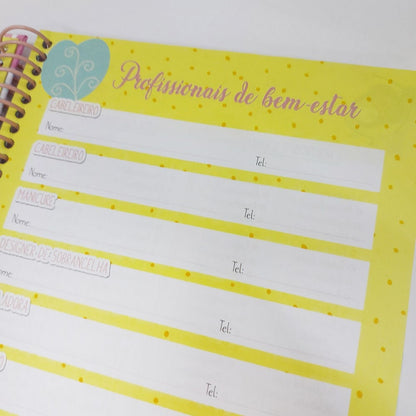 Profissionais de bem-estar
CABELEREIRO
Nome:
Tel:
CABELEIREIRO
Nome:
Tel:
MANICURE
Nome:
Tel:
DESIGNER DE SOBRANCELHA
Nome:
Tel:
ADORA
Tel:
Tel: